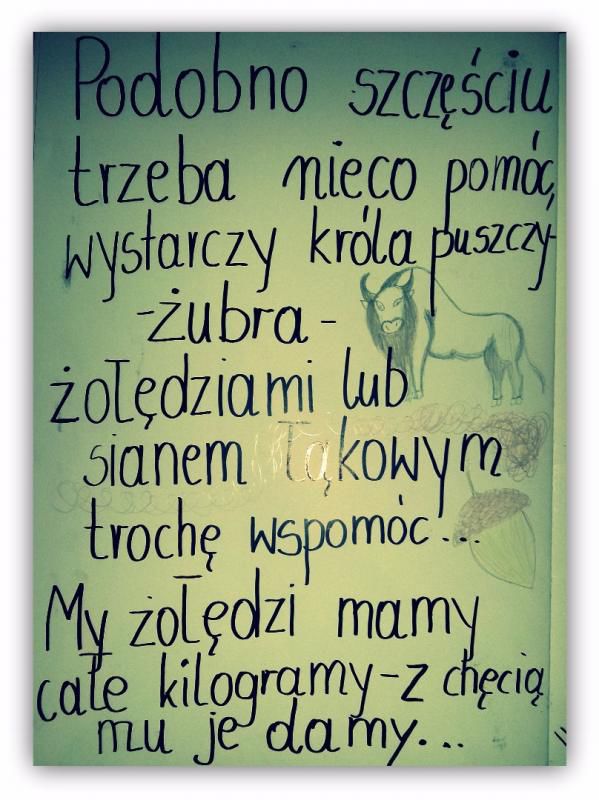 Podobno szczęściu
trzeba nieco pomóc,
wystarczy króla puszczy-
-żubra-
żołędziami lub
sianem łąkowym
trochę wspomóc...
My żołędzi mamy
całe kilogramy-z chęcią
mu je damy...